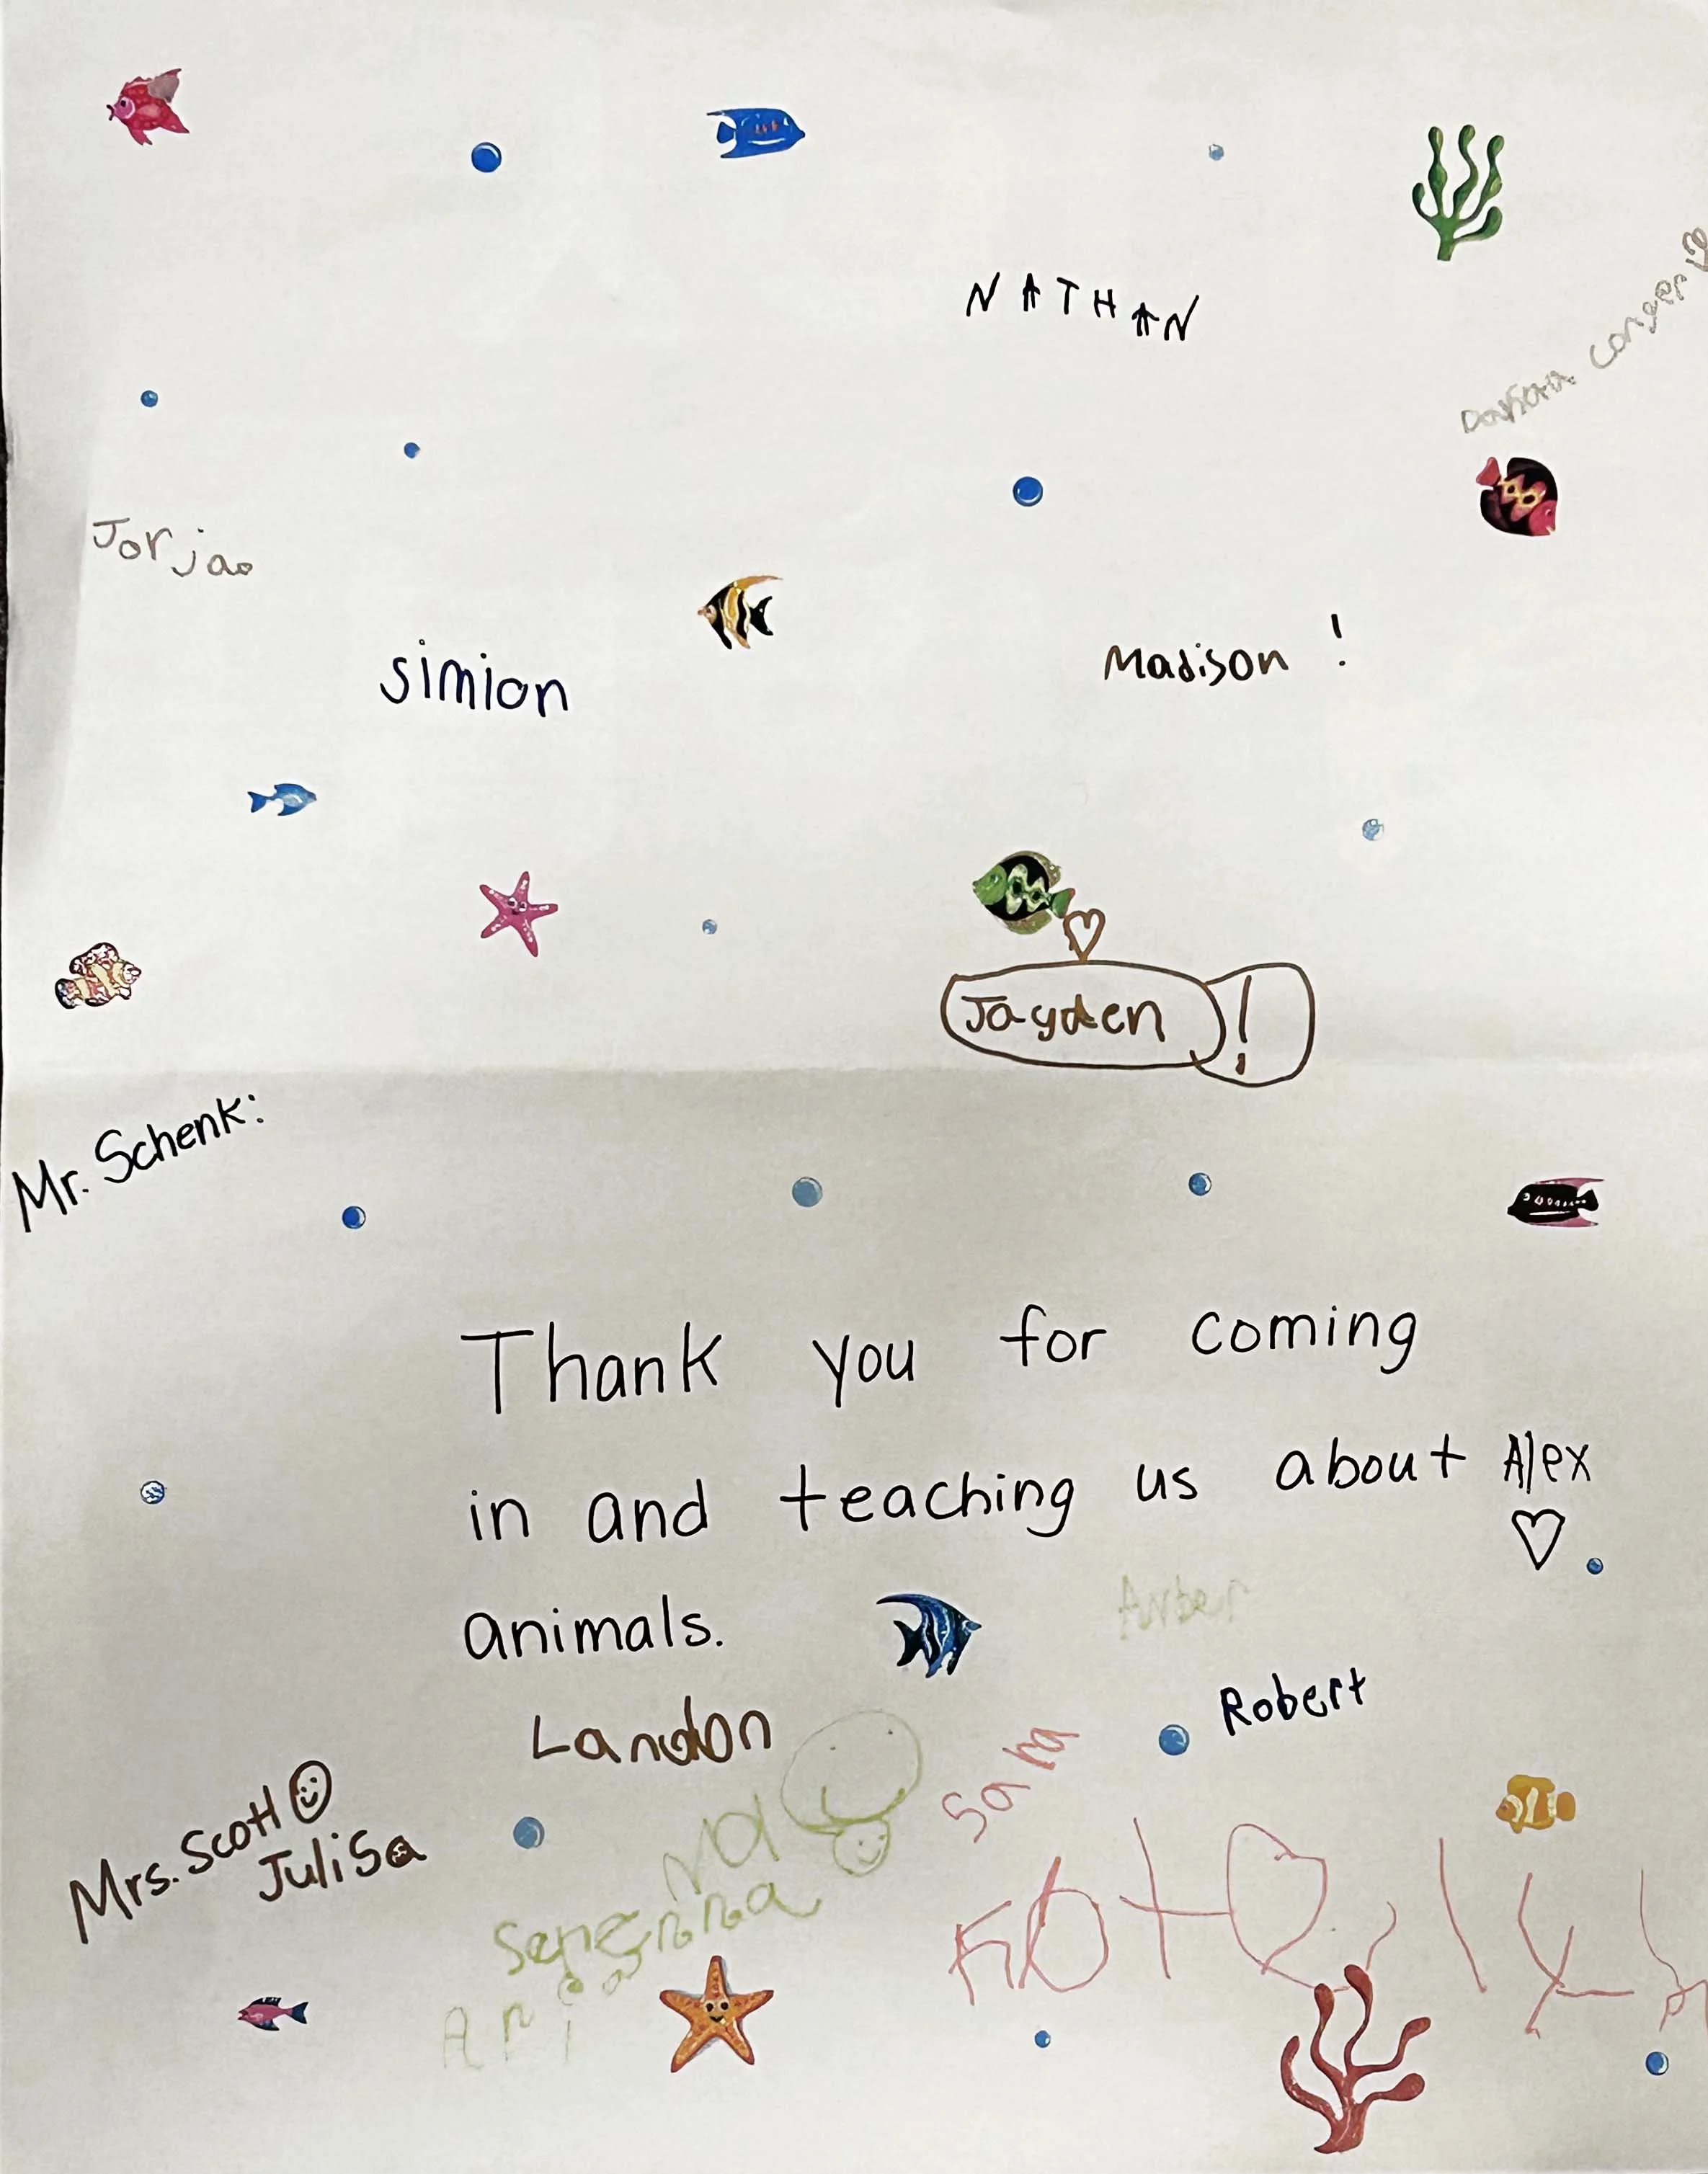 NATHAN
Jorja
simion
Madison !
Jayden !
Mr. Schenk:
Thank you for coming
in and teaching us about
Alex
animals.
Robert
Landon
Sara
Mrs. Scott
Julisa
Ari